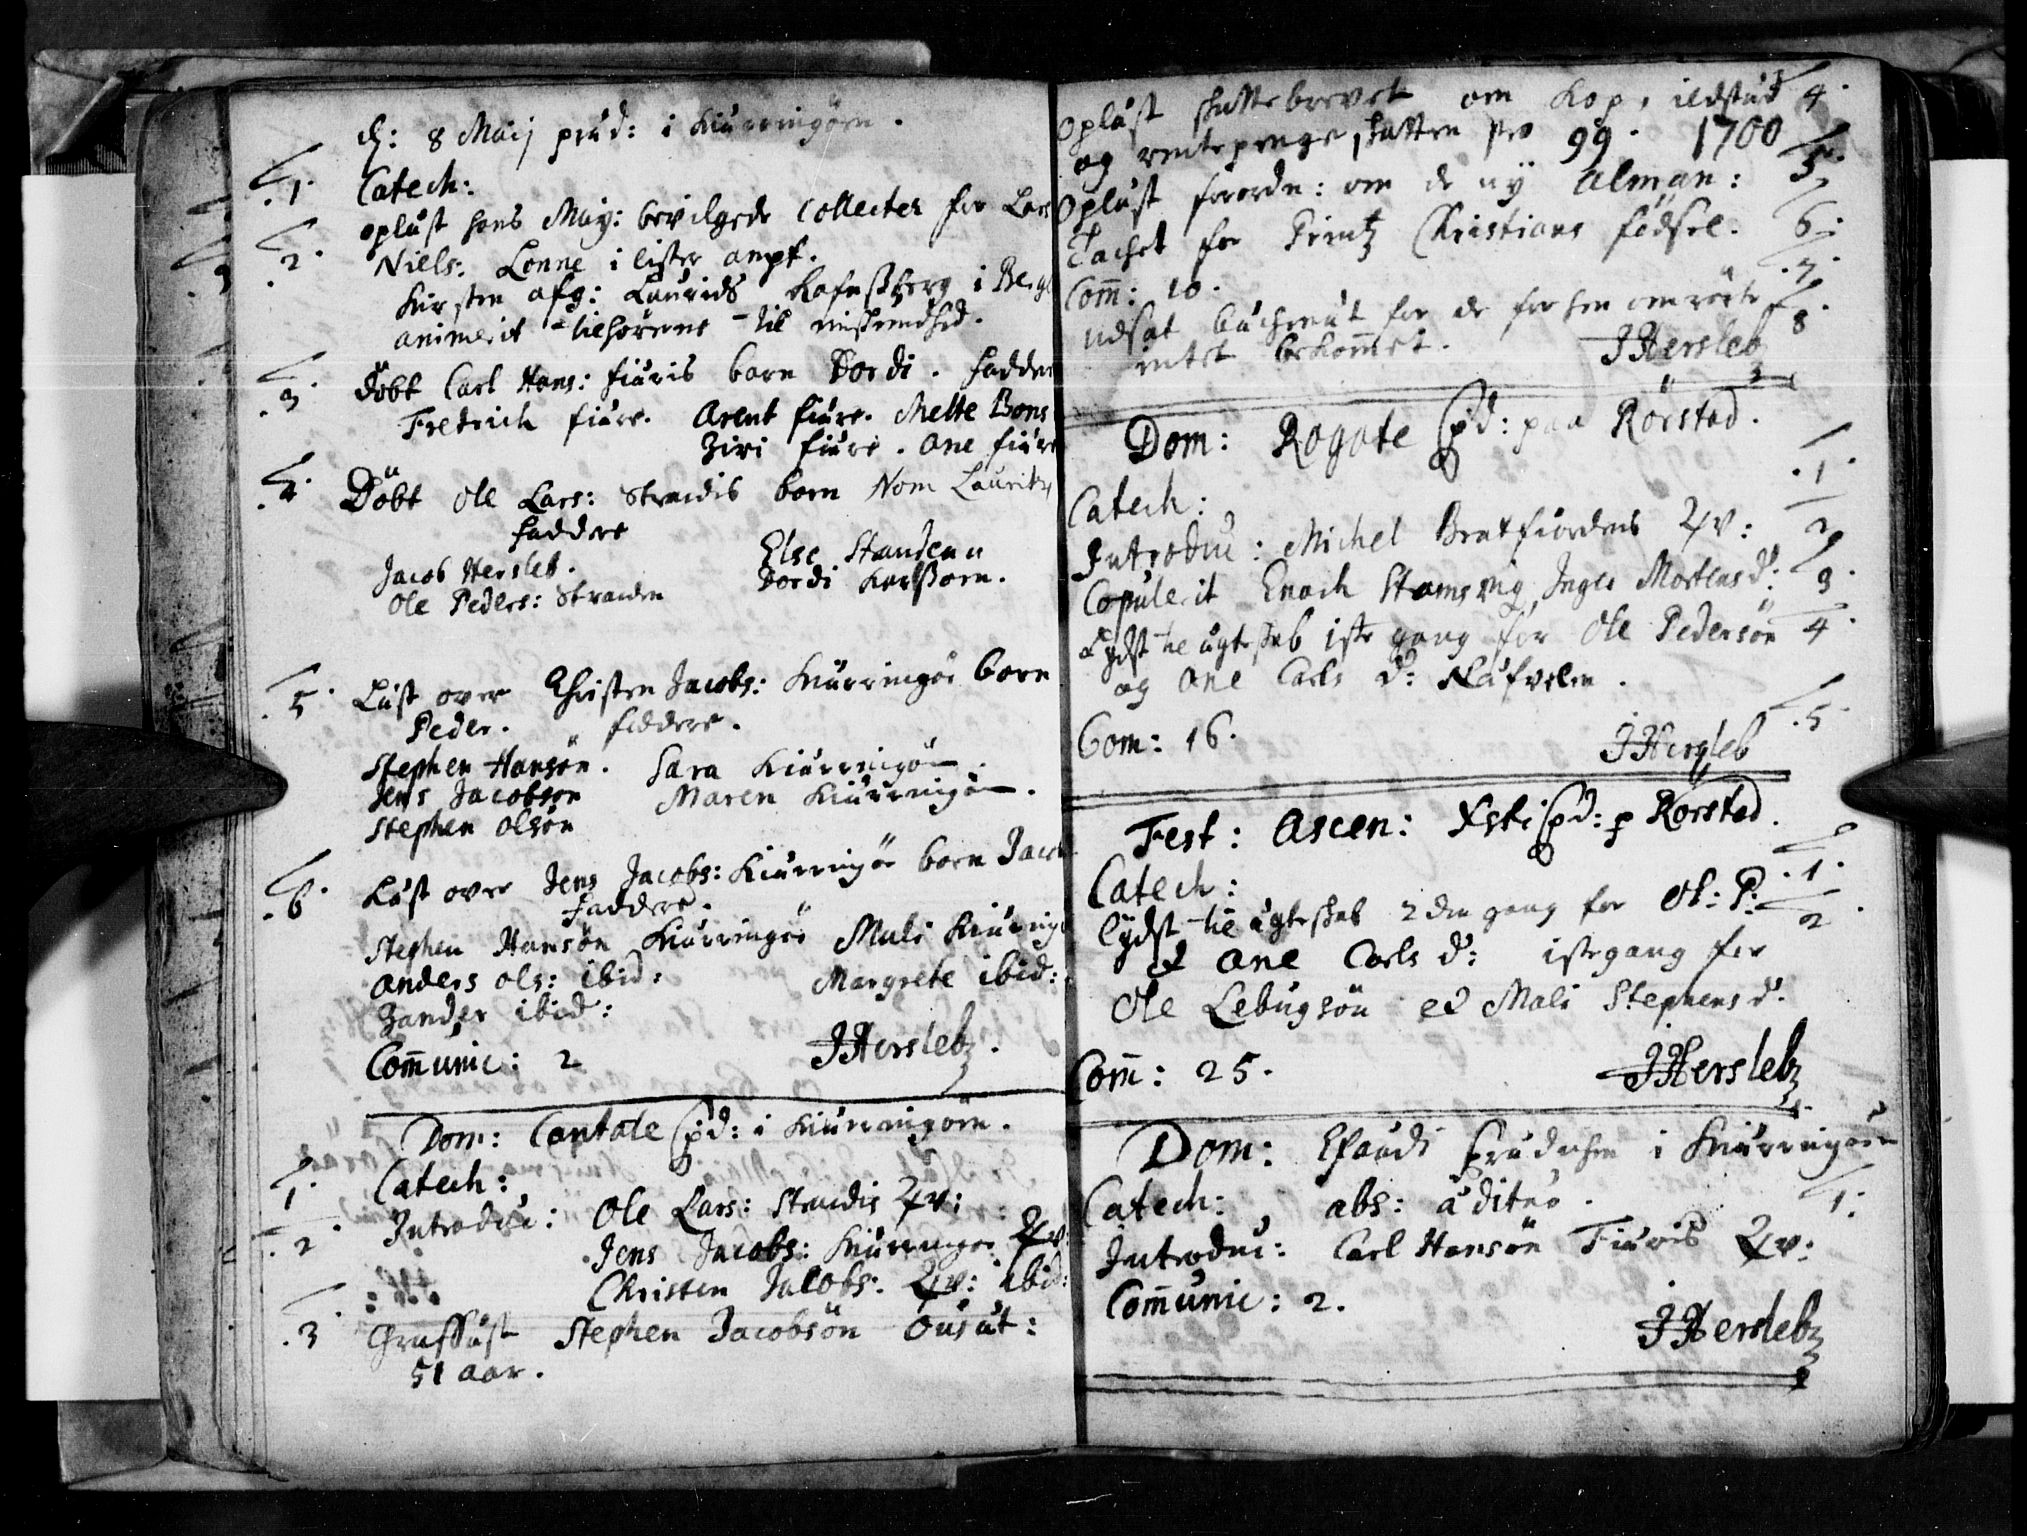 d: 8 Maij prud: i Kiurringöen.
1. Catech:
2. oplüst hans May: bevilgede Collecter for Lars
Niels: Lonne i lister ampt.
Kirsten afg: Laurids i Berg
animerit tilhörerne til
3. döbt Carl Hans: fiüris barn Dordi. fadder
Fredrich fiüre. Arent fiüre. Mette Bons
Ziri fiüre. Ane fiüre
4. Döbt Ole Lars: Strandis barn Nom Lauritz,
faddere
Jacob Hersleb. Else Standenn
Ole Peders: Stranden Dordi
5. Lüst over Christen Jacobs: Kiurringöe barn
Peder. faddere.
Stephen Hansön. Sara Kiurringöen.
Jens Jacobsøn Maren Kiurringöen.
Stephen Olsön
6. Lüst over Jens Jacobs: Kiurringöe barn Jacob
faddere.
Stephen Hansön Kiurringöe Mali Kiurringö
Anders Ols: ibid: Margrete ibid:
Zander ibid:
Com̄unic: 2 JHersleb.
Dom: Cantate pd: i Kiurringöen.
1. Catech:
2. Introduc: Ole Lars: Strandis qv:
Jens Jacobs: Kiurringöe qv:
Christen Jacobs: qv: ibid:
3. Graffüst Stephen Jacobsön
51 aar.
Oplüst skattebrevet om Kop, ildstüd 4.
og rentepenge skatten pro 99. 1700
Oplüst forordn: om de ny Alman: 5.
Tachet for Printz Christians fødsel. 6:
Com̄: 10. 7.
udsat for de for hen omrörte 8.
intet bekom̄et. JHersleb
Dom: Rogate pd: paa Rörstad.
Catech: 1.
Introduc: Michel qv: 2
Copulerit Enoch Inger Mortens d: 3.
Lyst te ügteskab iste gang for Ole Pedersön 4.
og Ane Carls d:
Com: 16. 5.
JHersleb
Fest: Ascen: Xsti pd: p Rörstad.
Catech: 1.
lydst te ügteskab 2den gang for Ol: P: 2.
& Ane Carls d: iste gang for
Ole Lebugsön et Mali Stephens d.
Com̄: 25. JHersleb
Dom: Exaudi prüdichen i Kiurringöen
Catech: abs: 1:
Introduc: Carl Hansön Fiüris qv:
Com̄unic: 2.
JHersleb